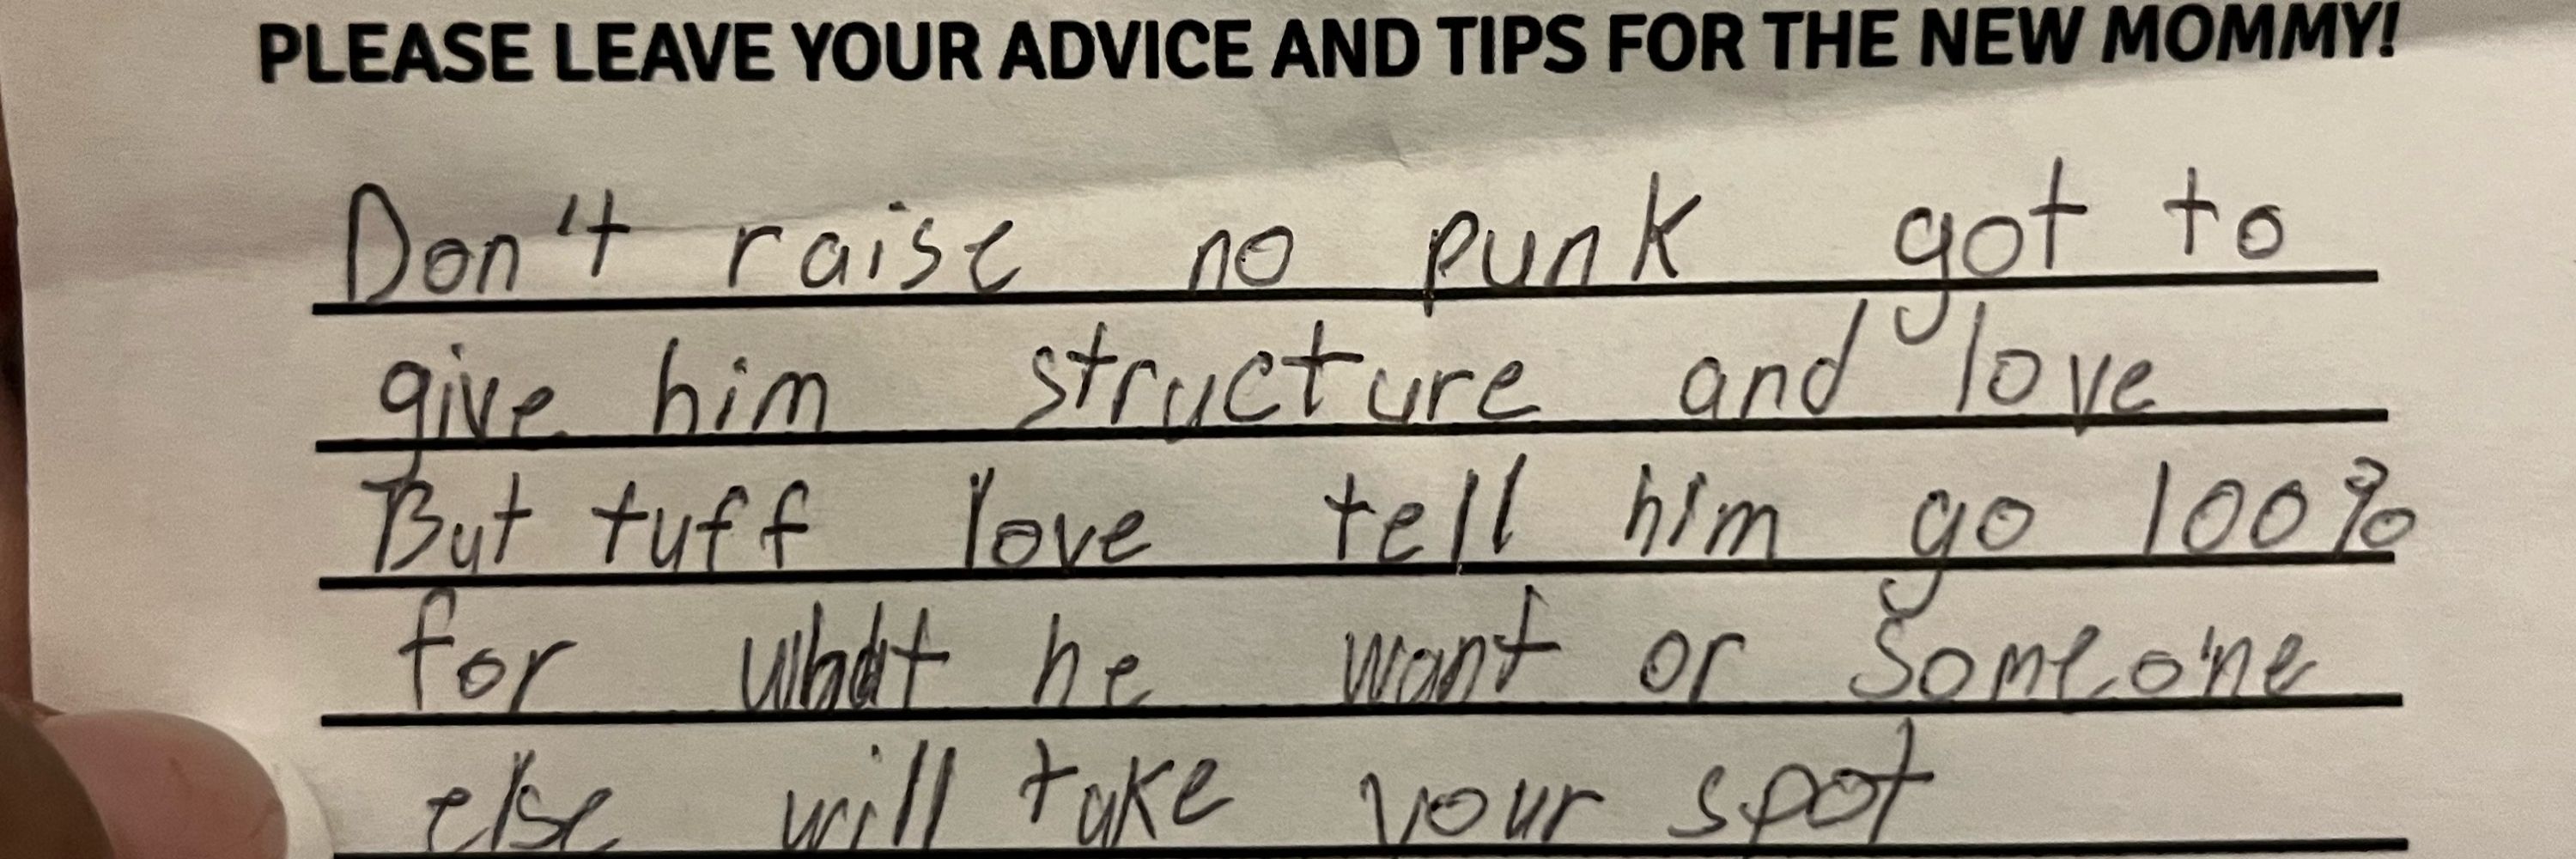 PLEASE LEAVE YOUR ADVICE AND TIPS FOR THE NEW MOMMY!
Don't raise no punk got to
give him structure and love
But tuff love tell him go 100%
for what he want or someone
else will take your spot